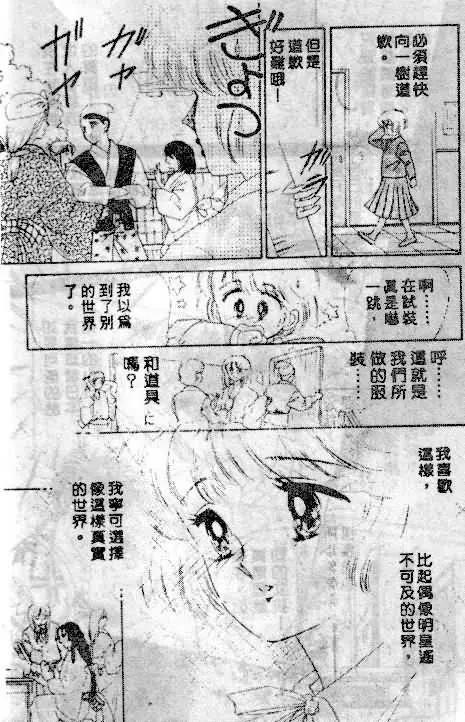 必須趕快
向一樹道
歉。
但是
道歉
好難哦—
ガヤ
ガヤ
ガヤ
ぎょっ
啊……
在試裝
真是嚇
一跳，
我以為
到了別
的世界
了。
呼……
這就是
我們所
做的服
裝……
和道具
嗎？
我喜歡
這樣，
比起偶像明星遙
不可及的世界，
我寧可選擇
像這樣真實
的世界。